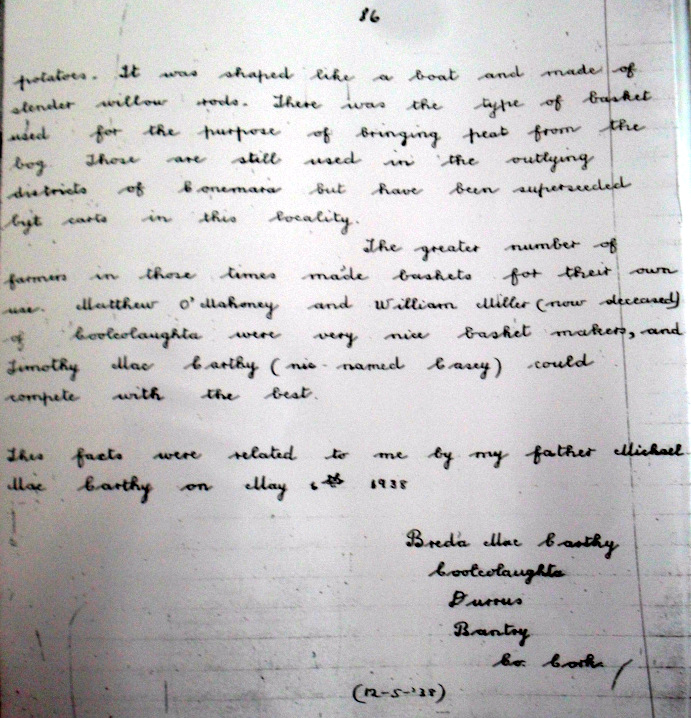 86
potatoes. It was shaped like a boat and made of
slender willow rods. There was the type of basket
used for the purpose of bringing peat from the
bog. Those are still used in the outlying
districts of Conemara but have been superseeded
byt carts in this locality.
The greater number of
farmers in those times made baskets for their own
use. Matthew O'Mahoney and William Miller (now deceased)
of Coolcolaughta were very nice basket makers, and
Timothy Mac Carthy (nic-named Casey) could
compete with the best.
Thes facts were related to me by my father Michael
Mac Carthy on May 6th 1938
Breda Mac Carthy
Coolcolaughta
Durrus
Bantry
Co. Cork.
(12-5-'38)